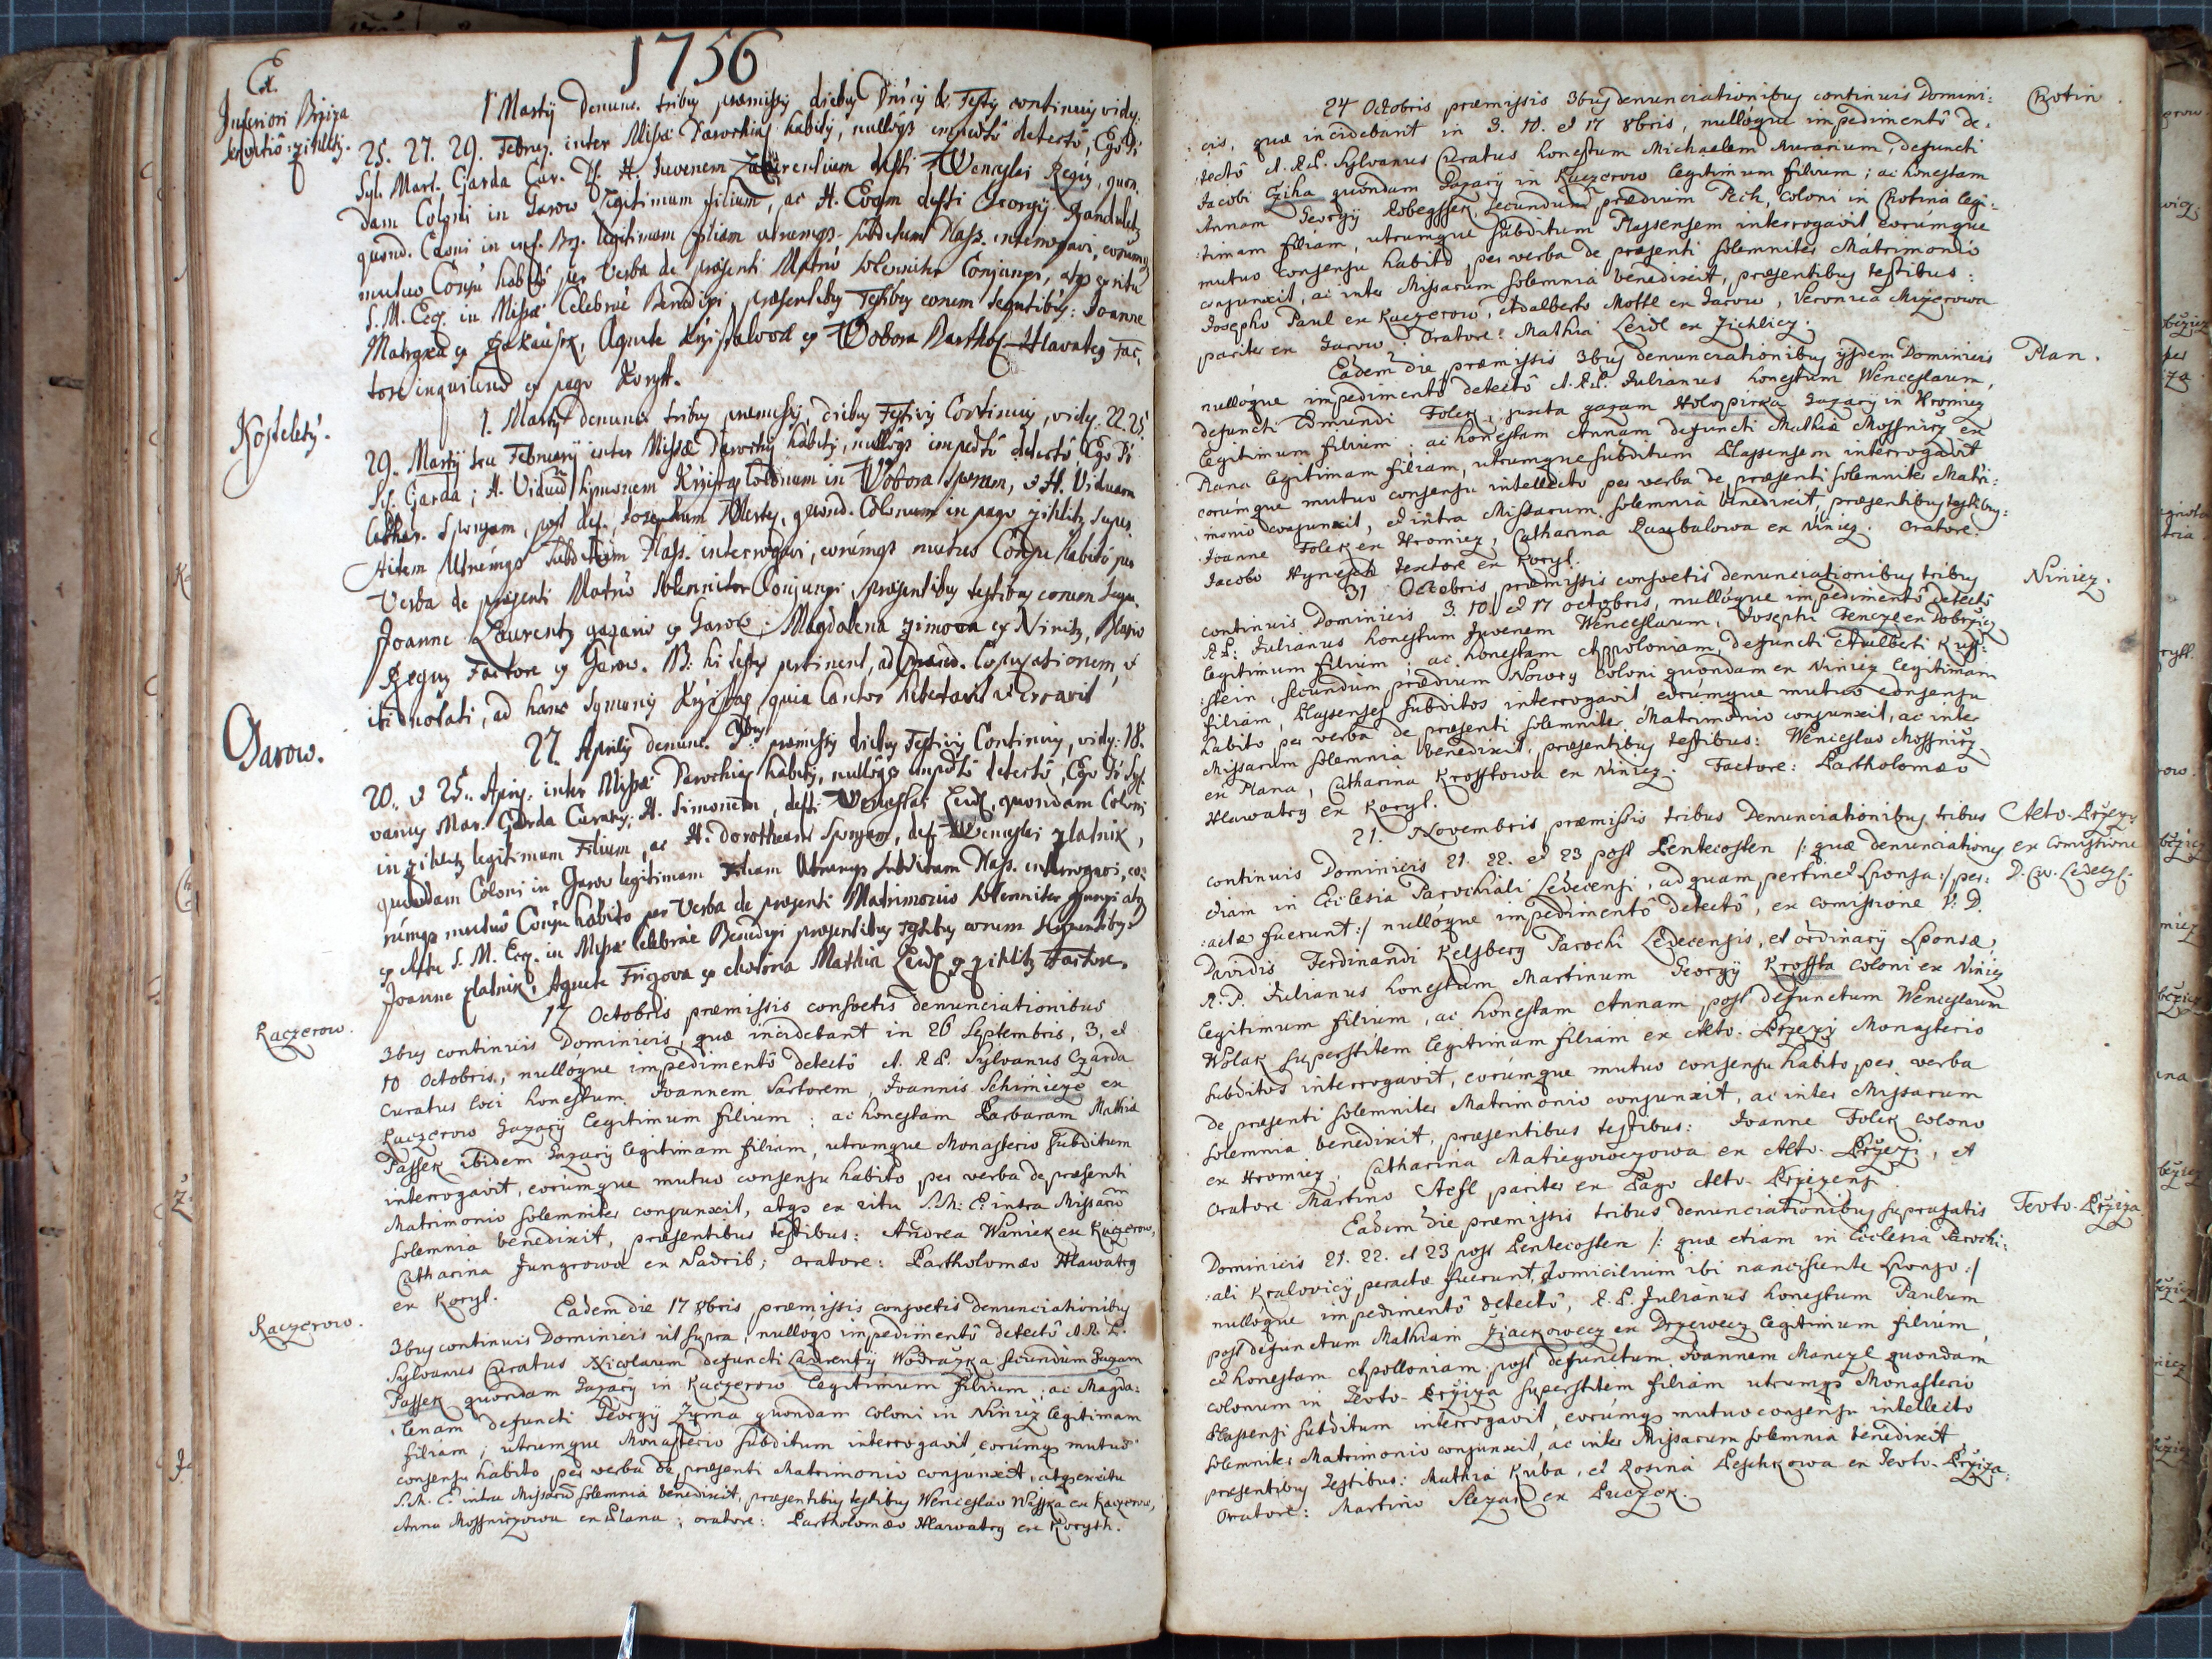 1756
Ex
Inferiori Brziza
1 Martÿ denunc. tribus præmissis diebus Dnicis & Festis continuis vidz:
25. 27. 29. Febru. inter Missæ Parochias habitis, nullôq; impedtô detectô, Ego P:
Syl. Mart. Czarda Cur. H. Juvenem Laurentium defti Wenceslai Regis, quon,
dam Coloni in Jarow legitimum filium, ac H. Evam defti Georgÿ
quond. Coloni in inf. Brz. legitimam filiam utrumq; subditum Plass. interrogavi, eorumq;
mutuo Consu habitô per Verba de præsenti Matrio solenniter Conjunxi, atq; ex ritu
S. M. Ecc. in Missæ Celebrae Benedixi, præsentibus Testibus eorum sequtibus: Joanne
ex Wobora Barthol. Hlavateg Fac,
tore inquilino ex pago Korytt.
Kostelety.
1. Martÿ denunc. tribus præmissis diebus Festivis Continuis, vidz. 22. 25.
29. Martÿ seu Februarÿ inter Missæ Parochis habitis, nullôq; impedtô detectô, Ego P:
Syl. Czarda; H. Viduum Symonem Krzistag Colonum in Wobora Sponsum, & H. Viduam
Cathar. Sponsam, post def. Josephum quond. Colonum in pago zihlitz Super
stitem Utrumq; Subditum Plass. interrogavi, eorumq; mutuo Consu habitô per
Verba de præsenti Matrio solenniter Conjunxi, præsentibus testibus eorum Sequ.
Joanne Laurentz gazario ex Garow; Magdalena zimova ex Ninitz, Blasio
Regus Factore ex Garow. NB: hi testes pertinent, ad secund. Copulationem, &
isti notati, ad hanc Symonis Krzistag, quia Cantor hebetavit & erravit
Garow.
27. Aprilis denunc. 3bus præmissis diebus Festivis Continuis, vidz: 18.
20. & 25. Apris. inter Missæ Parochias habitis, nullôq; impedtô detectô, Ego P: Syl,
vanus Mar. Czarda Curatus; H. Simonem, defti Wenceslai Leidl, quondam Coloni
in zihlitz legitimum Filium, ac H. Dorotheam Sponsam, def. Wenceslai zlatnik,
quondam Coloni in Garow legitimam Filiam Utrumq; Subditum Plass. interrogavi, eo,
rumq; mutuô Consu habito per Verba de præsenti Matrimonio solenniter junxi atq;
ex ritu S. M. Ecc. in Missæ Celebrae Benedixi præsentibus Testibus eorum sequentibus
Joanne zlatnik, Agneta Frigova ex chotina Mathia Leidl ex zihlitz Factore.
Kaczerow.
17 Octobris præmissis consvetis denunciationibus
3bus continuis Dominicis, quæ incidebant in 26 Septembris, 3, et
10 Octobris, nullóque impedimentô detectô A. R. P. Sylvanus Czarda
Curatus loci honestum Joannem Sartorem, Joannis Schimicze ex
Kaczerow Gazarÿ legitimum filium; ac honestam Barbaram Mathiæ
Passek ibidem Gazarÿ legitimam filiam, utrumque Monasterio subditum
interrogavit, eorúmque mutuo consensu habito per verba de præsenti
Matrimonio solemniter conjunxit, atq; ex ritu S. M: E: intra Missarum
solemnia benedixit, præsentibus testibus: Andrea Waniek ex Kaczerow,
Catharina Jungrowa ex Nadrib; oratore: Bartholomæo Hlawateg
ex Koryt.
Kaczerow.
Eadem die 17 8bris præmissis consvetis denunciationibus
3bus continuis Dominicis ut supra, nullóq; impedimentô detectô A. R. P.
Sylvanus Curatus Nicolaum defuncti Laurentÿ Wodrazka secundum Gazam
Passek quondam Gazarÿ in Kaczerow legitimum filium; ac Magda:
:lenam defuncti Georgÿ Zyma quondam coloni in Niniez legitimam
filiam; utrumque Monasterio subditum interrogavit, eorúmq; mutuo
consensu habito per verba de præsenti Matrimonio conjunxit, atq; ex ritu
S. M. E: intra Missarũ solemnia benedixit, præsentibus testibus Wenceslao Wisska ex Kaczerow,
Anna Mossniczowa ex Plana; oratore: Bartholomæo Hlawateg ex Koryth.
Chotin
24 Octobris præmissis 3bus denunciationibus continuis Domini:
:cis, quæ incidebant in 3. 10. et 17 8bris, nullóque impedimentô de:
:tectô A. R. P. Sylvanus Curatus honestum Michaelem Murarium, defuncti
Jacobi Cziha quondam Gazarÿ in Kaczerow legitimum filium; ac honestam
Annam Georgÿ Kobegssek, secundum prædium Pech, coloni in Chotina legi:
:timam filiam, utrumque subditum Plassensem interrogavit, eorúmque
mutuo consensu habito, per verba de præsenti solemniter Matrimonio
conjunxit, ac inter Missarum solemnia benedixit, præsentibus testibus:
Josepho Paul ex Kaczerow, Adalberto Mottl ex Jarow, Veronica Mizerowa
pariter ex Jarow. Oratore: Mathia Leidl ex Zichlicz.
Plan.
Eadem die præmissis 3bus denunciationibus ÿsdem Dominicis
nullóque impedimentô detectô A. R. P. Julianus honestum Wenceslaum,
defuncti Edmundi Folek, juxta gazam Holopirka Gazarÿ in Hromiez
legitimum filium; ac honestam Annam defuncti Mathiæ Mossnicz ex
Plana legitimam filiam, utrumque subditum Plassensem interrogavit
eorúmque mutuo consensu intellecto per verba de præsenti solemniter Matri:
:monio conjunxit, et intra Missarum solemnia benedixit, præsentibus testibus:
Joanne Folek ex Hromiez, Catharina Laubalowa ex Niniez. Oratore:
Jacobo Hynesch textore ex Koryt.
Niniez.
31 Octobris præmissis consvetis denunciationibus tribus
continuis Dominicis 3. 10. et 17 octobris, nullóque impedimentô detectô
R. P: Julianus honestum Juvenem Wenceslaum, Josephi Jenczl ex Dobrzicz
legitimum filium; ac honestam Appoloniam, defuncti Adalberti Kuf:
:stein, secundum prædium Nowey coloni quondam ex Niniez legitimam
filiam, Plassenses subditos interrogavit, eorúmque mutuo consensu
habito per verba de præsenti solemniter Matrimonio conjunxit, ac inter
Missarum solemnia benedixit, præsentibus testibus: Wenceslao Mossnicz
ex Plana, Catharina Krosstowa ex Niniez. Factore: Bartholomæo
Hlawateg ex Koryt.
Alto-Brzezy
ex Comissione
D. Cu. Ledecz.
21. Novembris præmissis tribus Denunciationibus tribus
continuis Dominicis 21. 22. et 23 post Pentecosten /: quæ denunciationes
etiam in Ecclesia Parochiali Ledecensi, ad quam pertinet Sponsa :/ per:
:actæ fuerunt :/ nullóque impedimentô detectô, ex comissione P: D.
Davidis Ferdinandi Kelsberg Parochi Ledecensis, et ordinarÿ Sponsæ,
R. P. Julianus honestum Martinum Georgÿ Krossta coloni ex Niniez
legitimum filium, ac honestam Annam post defunctum Wenceslaum
Wolak superstitem legitimam filiam ex Alto-Brzezÿ Monasterio
subditos interrogavit, eorúmque mutuo consensu habito per verba
de præsenti solemniter Matrimonio conjunxit, ac inter Missarum
solemnia benedixit, præsentibus testibus: Joanne Folek colono
ex Hromiez, Catharina Matiegowczowa ex Alto-Brzezi, et
Oratore Martino Aesl pariter ex Pago Alto-Brzezensi.
Teuto-Brziza.
Eadem die præmissis tribus denunciationibus suprafatis
Dominicis 21. 22. et 23 post Pentecosten /: quæ etiam in Ecclesia Parochi:
:ali Kralovicÿ peractæ fuerunt, domicilium ibi nanciscente Sponso :/
nullóque impedimentô detectô, R. P. Julianus honestum Paulum
post defunctum Mathiam Ziackowecz ex Drzewecz legitimum filium,
et honestam Apolloniam post defunctum Joannem Manczl quondam
colonum in Teuto-Brziza superstitem filiam utrumq; Monasterio
Plassensi subditum interrogavit, eorúmq; mutuo consensu intellecto
solemniter Matrimonio conjunxit, ac inter Missarum solemnia benedixit
præsentibus testibus: Mathia Kuba, et Rosina Peschkowa ex Teuto-Brziza:
Oratore: Martino Slezak ex Buczek.